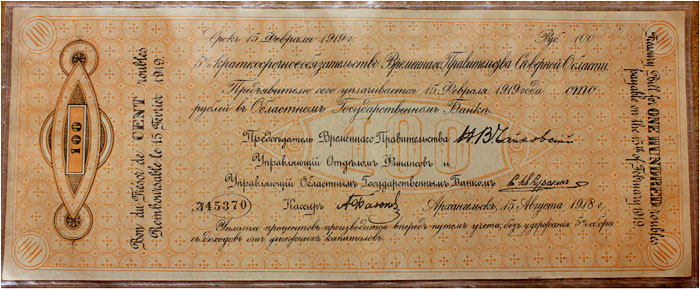 Срокъ 15 Февраля 1919 г. Руб. 100
5% краткосрочное обязательство Временнаго Правительства Северной Области.
Предъявителю сего уплачивается 15 Февраля 1919 года сто
рублей въ Областномъ Государственномъ Банкѣ.
Председатель Временнаго Правительства Н. В. Чайковский
Управляющий Отдѣломъ Финансовъ и
Управляющий Областнымъ Государственнымъ Банкомъ
345370 Кассиръ Архангельскъ, 15 Августа 1918 г.
Уплата процентовъ производится впередъ путемъ учета, безъ удержания 5% сбора
съ доходовъ отъ денежныхъ капиталовъ.
100
Bon du Trésor de CENT roubles
Remboursable le 15 Février 1919.
Treasury Bill for ONE HUNDRED roubles
payable on the 15th of February 1919.
100
100
100
100
100